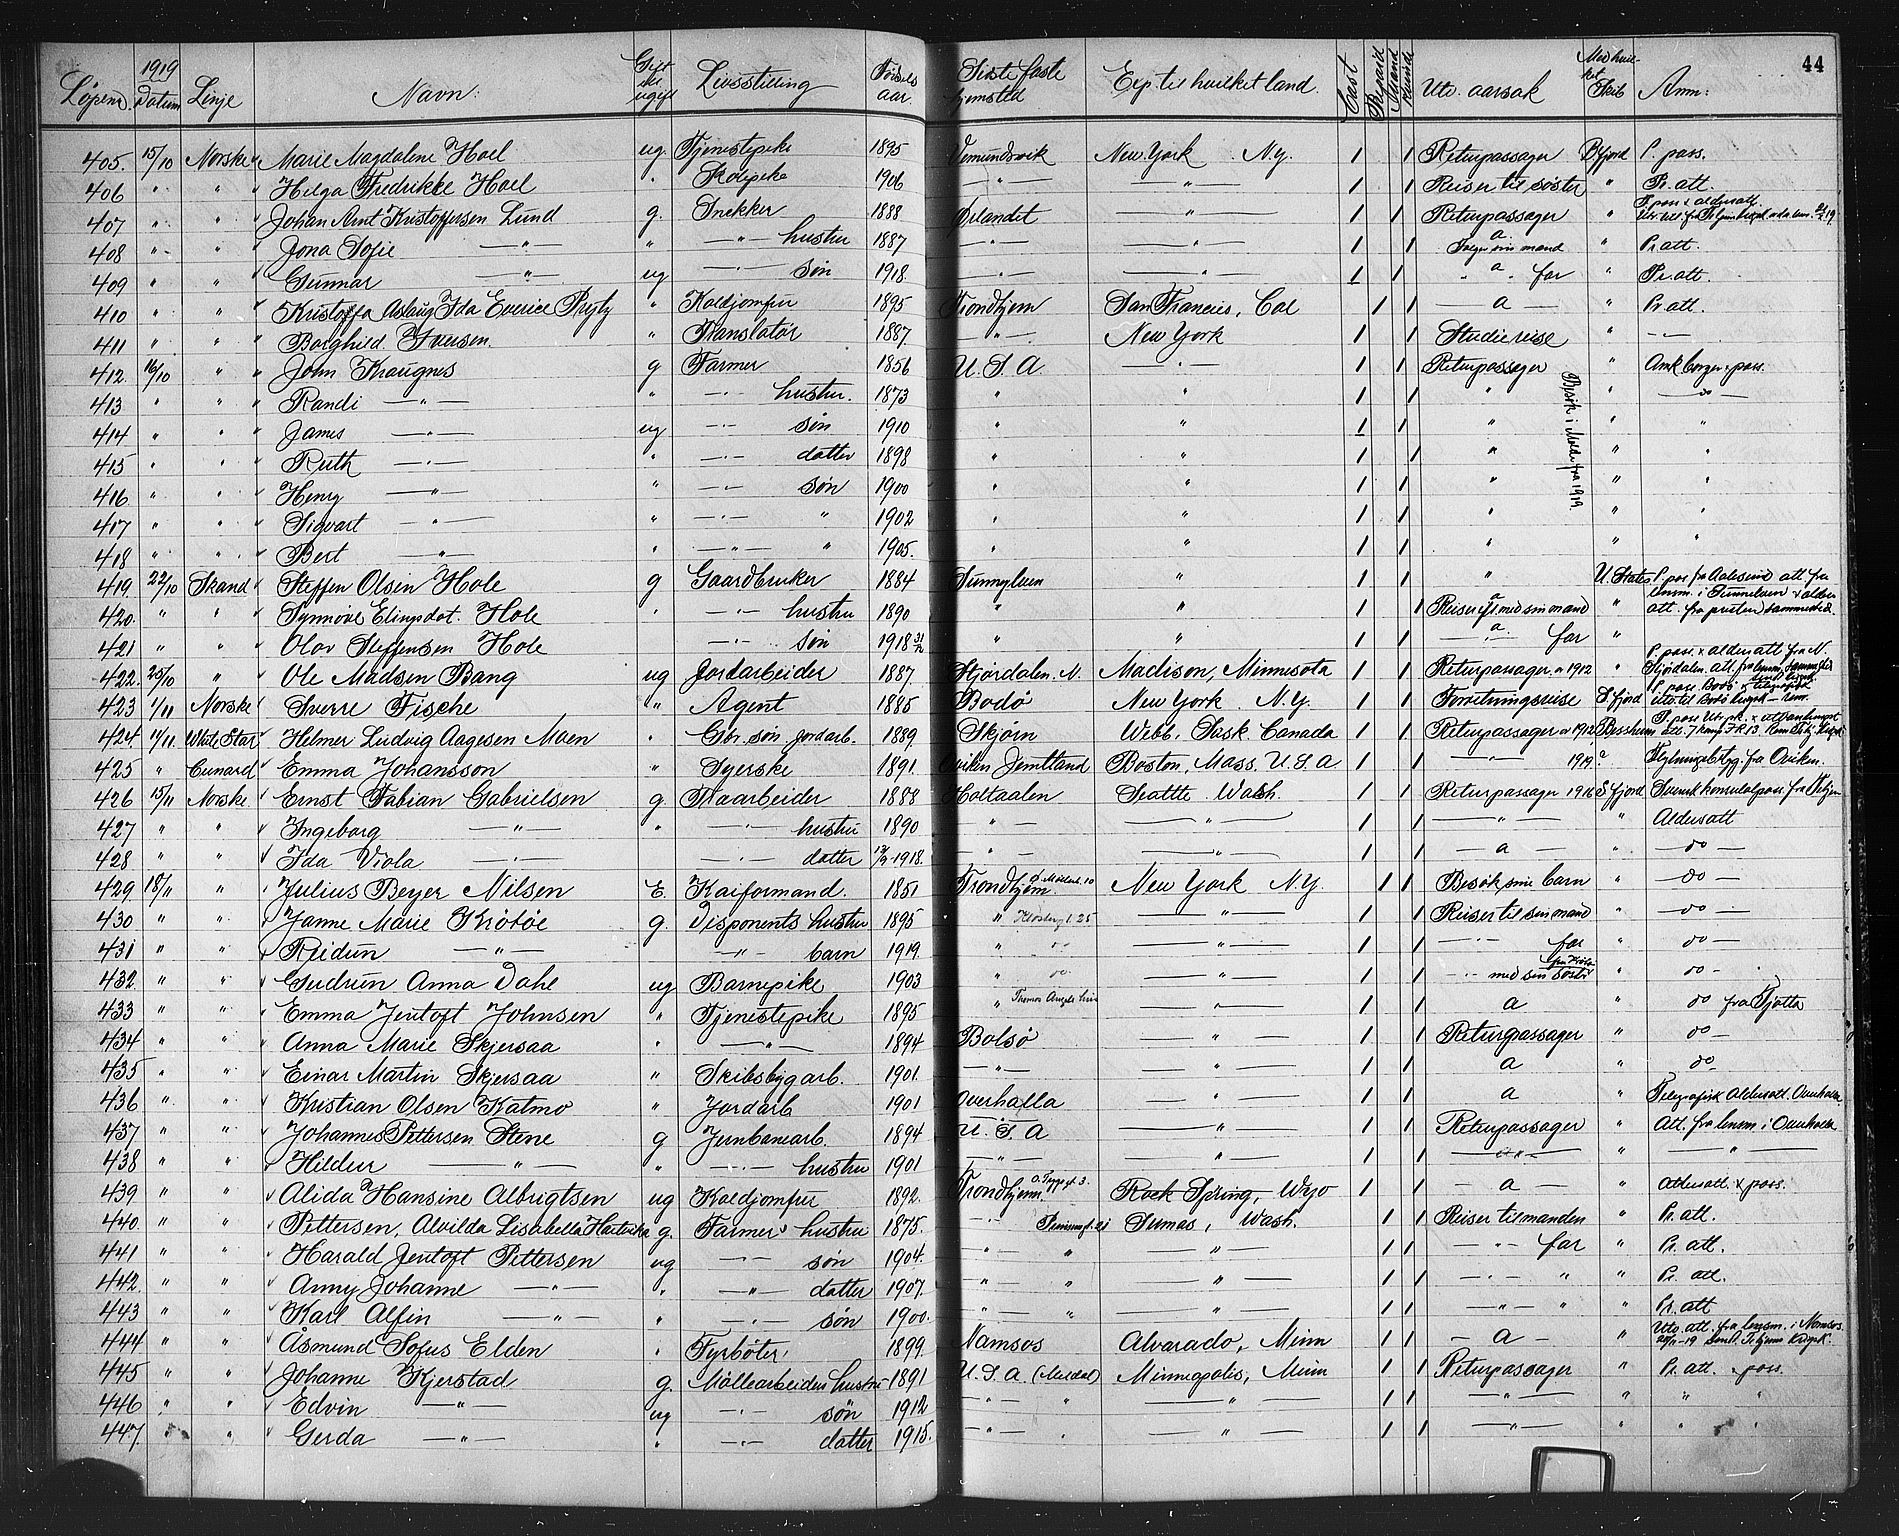 44
Løpenr. 1919 Datum Linje Navn: Gift el. ugift Livsstilling Fødselsaar. Siste faste hjemsted Exp. til hvilket land. Cash Prepaid Mand Kvinde Utv. aarsak Med hvilket Skib Anm:
405. 15/10 Norske Marie Magdalene Hoel ug. Tjenestepike 1895 Vemundsvik New York N.Y. 1 1 Returpassager Bfjord P. pass.
406 " " Helga Fredrikke Hoel " 1906 — " — — " — 1 1 Reiser til søster " Pr. att.
407 " " Johan Arnt Kristoffersen Lund g. Snekker 1888 Ørlandet " 1 1 Returpassager " P. pass & aldersatt.
408 " " Jona Sofie — " — " — " — hustru 1887 — " — — " — 1 1 Følger sin mand " Pr. att.
409 " " Gunnar — " — ug — " — søn 1918. — " — — " — 1 1 " a " far " Pr. att.
410 " " Kristoffa Aslaug Ida " Koldjomfru 1895 Trondhjem San Francisc, Cal 1 1 — a — " Pr. att.
411 " " Borghild Iversen " Translatør 1887. — " — New York 1 1 Studiereise " — " —
412. 16/10 " " John Kraugnes g Farmer 1856 U. S. A — " — 1 1 Returpassager " Amk borger. pass.
413 " " " Randi — " — " — " — hustru. 1873 " " 1 1 " " — do —
414 " " " James — " — ug — " — søn 1910 " " 1 1 " " "
Besøk i Molde fra 1919.
415 " " " Ruth — " — " — " — datter 1898 " " 1 1 " " "
416 " " Henry — " — " — " — søn 1900 " " 1 1 " " "
417 " " Sigvart — " — " — " — " 1902 " " 1 1 " " "
418 " " Bert — " — " — " — " 1905. " " 1 1 " " "
419. 22/10 Skand Steffen Olsen Hole g Gaardbruker 1884 Sunnylven " 1 1 " U. States P. pas fra Aalesund att fra
420. " " Synnøve Elingsdot. Hole " — " — hustru 1890 " " 1 1 Reiser med sin mand " att. fra presten sammesteds.
421 " " Olav Steffensen Hole — " — søn 1918 " " 1 1 — " — far "
422. 20/10 " Ole Madsen Bang ug Jordarbeider 1887. Stjørdalen. N. Madison, Minnesota 1 1 Returpassager 1912 " P. pass. & aldersatt fra N. Stjørdalen
423 1/11 Norske Sverre Fische " Agent 1885 Bodø New York N.Y. 1 1 Forretningsreise Sfjord P. pass Bodø
424. 11/11. White Star Helmer Ludvig Aagesen Moen " Gbr. søn jordarb. 1889. Skjørn Webb, Sask. Canada 1 1 Returpassager 1912
425 " Cunard Emma Johansson " Syerske 1891. Oviken Jemtland Boston, Mass. U.S.A 1 1 — " — 1919. Flytningsbetyg. fra Oviken.
426 15/11 Norske Ernst Fabian Gabrielsen g. 1888 Holtaalen Seattle Wash. 1 1 Returpassager 1916 Sfjord Svensk konsulatpass. fra Thjem
427 " " Ingeborg — " — " — " — hustru 1890 — " — — " — 1 1 — " — " Aldersatt
428 " " Ida Viola — " — — " — datter 1918. — " — — " — 1 1 — a — " — do —
429. 18/11 " Julius Beyer Nilsen E. Kaiformand. 1851 Trondhjem 10 New York N.Y. 1 1 Besøk sine barn " — do —
430 " " Janne Marie Krötöe g. Disponents hustru 1895 " Klosterg t. 25 — " — 1 1 Reiser til sin mand " — do —
431 " " Reidun — " — — " — barn 1919. " do — " — 1 1 — " — far " do —
432 " " Gudrun Anna Dahl ug Barnepike 1903 " do — " — 1 1 — " — med sin søster " do —
433 " " Emma Jentoft Johnsen " Tjenestepike 1895 " Thomas Angels — " — 1 1 a " do fra Tjøtta
434 " " Anna Marie Skjersaa " — " — 1894 Bolsø — " — 1 1 Returpassager " do —
435 " " Einar Martin Skjersaa " Skibsbygarb. 1901. — " — — " — 1 1 a " do —
436 " " Kristian Olsen Katmo " Jordarb 1901 Overhalla — " — 1 1 a " Telegrafisk Aldersatt. Overhalla
437 " " Johannes Pettersen Stene g Jernbanearb. 1894 U. S. A — " — 1 1 Returpassager " Att. fra lensm. i Overhalla
438 " " Hildur — " — " — " — hustru 1901 — " — — " — 1 1 — " — " — " —
439 " " Alida Hansine Albrigtsen ug Koldjomfru 1892. Trondhjem 3. Rock Spring, Wyo 1 1 — a — " aldersatt. & pass.
440. " " Pettersen, Alvilda Lisabella Hartvika g. Farmers hustru 1875. — " — Sumas, Wash. 1 1 Reiser til manden " Pr. att.
441 " " Harald Jentoft Pettersen ug — " — søn 1904. — " — " — " — 1 1 — " — far " Pr. att.
442. " " Anny Johanne — " — " — " — datter 1907. — " — " — " — 1 1 — " — " " Pr. att.
443 " " Karl Alfin — " — " — " — søn 1900. — " — " — " — 1 1 — " — " " Pr. att
444 " " Åsmund Sofus Elden " Fyrbøter 1899. Namsos Alvarado, Minn 1 1 — a — " Utv. att. fra lensm. i Namsos
445 " " Johanne Kjerstad g. Møllearbeiders hustru 1891 U.S.A. (Meldal) Minneapolis, Minn 1 1 Returpassager " Pr. att. pass.
446 " " Edvin — " — ug — " — søn 1912 — " — " — " — 1 1 — " — " " "
447. " " Gerda — " — " — " — datter 1915. — " — " — " — 1 1 — " — " " "